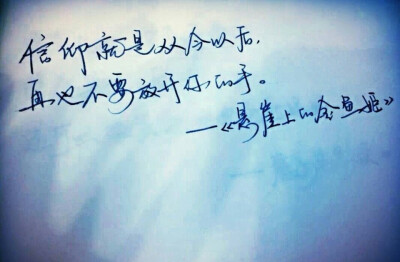 信仰就是从今以后，
再也不要放开你的手。
——《悬崖上的金鱼姬》